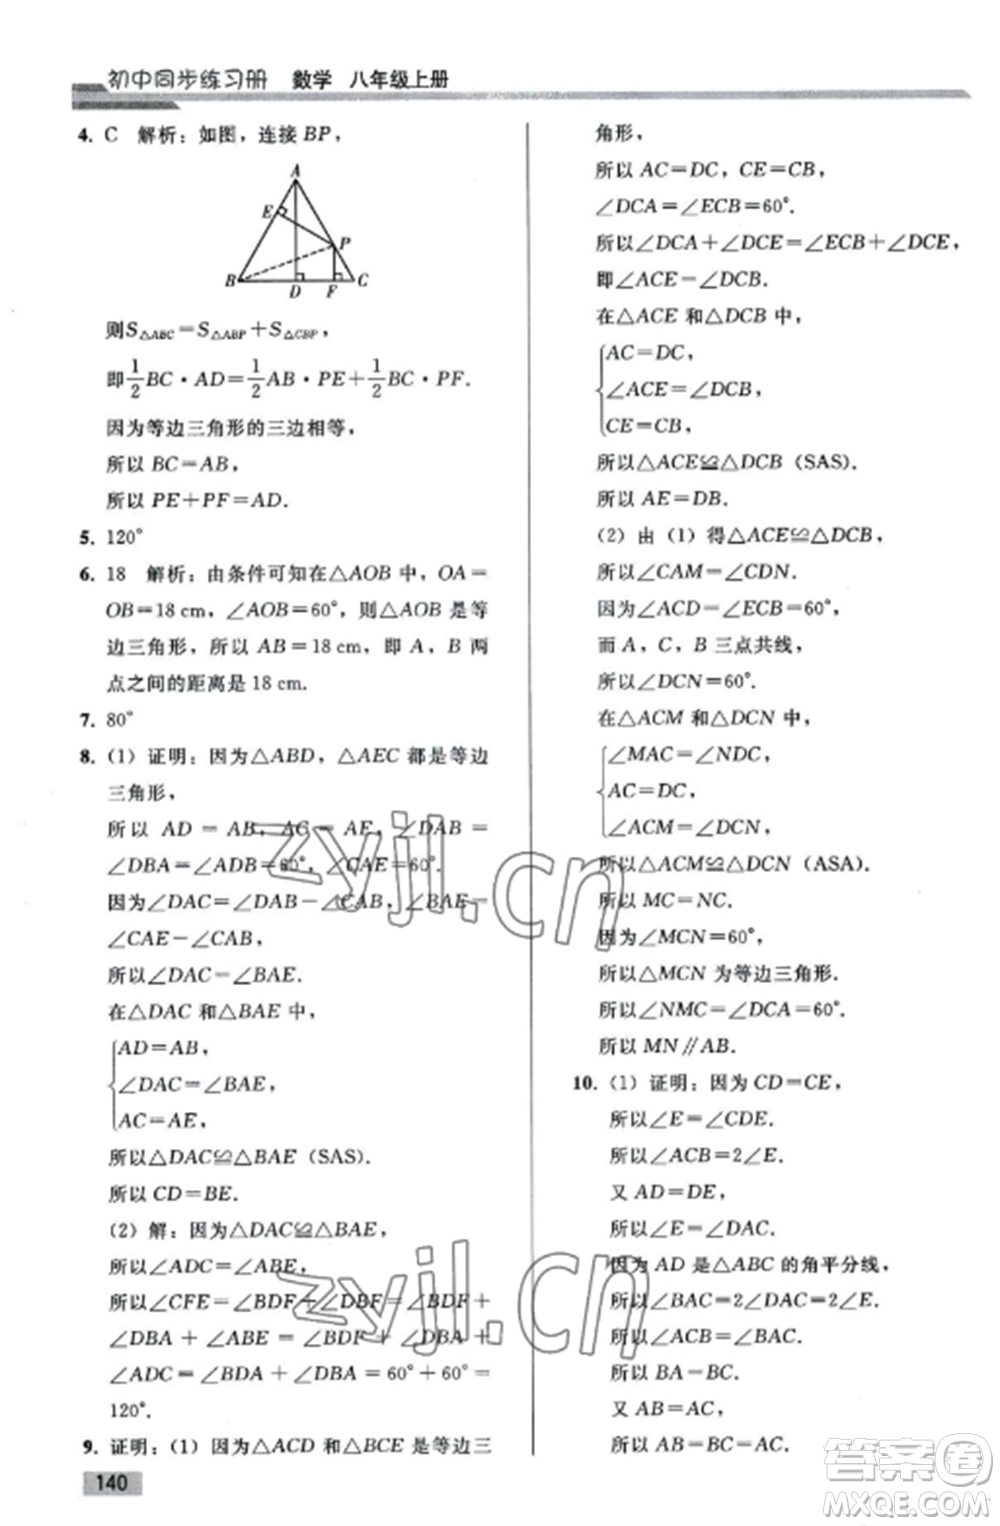 初中同步练习册 数学 八年级上册
4. C 解析：如图，连接 BP，
A
E
P
B
D
F
C
则S△ABC＝S△ABP＋S△CBP，
即1/2BC·AD＝1/2AB·PE＋1/2BC·PF.
因为等边三角形的三边相等，
所以 BC＝AB，
所以 PE＋PF＝AD.
5. 120°
6. 18 解析：由条件可知在△AOB 中，OA＝
OB＝18 cm，∠AOB＝60°，则△AOB 是等
边三角形，所以 AB＝18 cm，即 A，B 两
点之间的距离是 18 cm.
7. 80°
8. (1) 证明：因为△ABD，△AEC 都是等边
三角形，
所以 AD ＝ AB，AC ＝ AE，∠DAB ＝
∠DBA＝∠ADB＝60°，∠CAE＝60°.
因为∠DAC＝∠DAB－∠CAB，∠BAE＝
∠CAE－∠CAB，
所以∠DAC＝∠BAE.
在△DAC 和△BAE 中，
AD＝AB，
∠DAC＝∠BAE，
AC＝AE，
所以△DAC≌△BAE (SAS).
所以 CD＝BE.
(2) 解：因为△DAC≌△BAE，
所以∠ADC＝∠ABE，
所以∠CFE＝∠BDF＋∠DBF＝∠BDF＋
∠DBA ＋ ∠ABE ＝ ∠BDF ＋ ∠DBA ＋
∠ADC ＝ ∠BDA ＋ ∠DBA ＝ 60°＋60°＝
120°.
9. 证明：(1) 因为△ACD 和△BCE 是等边三
140
角形，
所以 AC＝DC，CE＝CB，
∠DCA＝∠ECB＝60°.
所以∠DCA＋∠DCE＝∠ECB＋∠DCE，
即∠ACE＝∠DCB.
在△ACE 和△DCB 中，
AC＝DC，
∠ACE＝∠DCB，
CE＝CB，
所以△ACE≌△DCB (SAS).
所以 AE＝DB.
(2) 由 (1) 得△ACE≌△DCB，
所以∠CAM＝∠CDN.
因为∠ACD＝∠ECB＝60°，
而 A，C，B 三点共线，
所以∠DCN＝60°.
在△ACM 和△DCN 中，
∠MAC＝∠NDC，
AC＝DC，
∠ACM＝∠DCN，
所以△ACM≌△DCN (ASA).
所以 MC＝NC.
因为∠MCN＝60°，
所以△MCN 为等边三角形.
所以∠NMC＝∠DCA＝60°.
所以 MN∥AB.
10. (1) 证明：因为 CD＝CE，
所以∠E＝∠CDE.
所以∠ACB＝2∠E.
又 AD＝DE，
所以∠E＝∠DAC.
因为 AD 是△ABC 的角平分线，
所以∠BAC＝2∠DAC＝2∠E.
所以∠ACB＝∠BAC.
所以 BA＝BC.
又 AB＝AC，
所以 AB＝BC＝AC.
zyjl.cn
zyjl.cn
答案圈
MXQE.COM